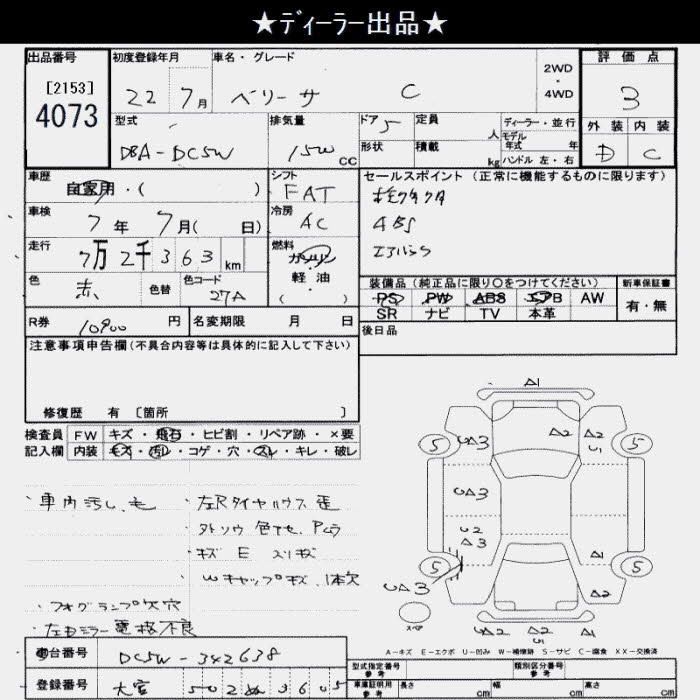 ★ディーラー出品★
出品番号 初度登録年月 車名・グレード 2WD・4WD 評価点
[2153]
4073
22 7月 ベリーサ C 3
型式 排気量 ドア 5 定員 人 ディーラー・並行 外装 内装
モデル年式 年
DBA-DC5W 1500 CC 形状 積載 kg ハンドル 左・右 D C
車歴 自家用・( ) シフト FAT セールスポイント (正常に機能するものに限ります)
車検 7年 7月( 日) 冷房 AC
ABS
走行 7万2千363km 燃料 ガソリン・軽油・( )
エアバック
色 赤 色替 色コード 27A
装備品 (純正品に限り○をつけてください) 新車保証書
PS PW ABS エアB AW 有・無
SR ナビ TV 本革
R券 10900 円 名変期限 月 日
後日品
注意事項申告欄(不具合内容等は具体的に記入して下さい)
修復歴 有 [箇所 ]
検査員 FW キズ・飛石・ヒビ割・リペア跡・×要
記入欄 内装 キズ・汚れ・コゲ・穴・スレ・キレ・破レ
・車内汚し、
・左Rタイヤハウス歪
ガトソウ色アセ、Pムラ
・キズ E スリキズ
・Wキャップキズ、1本欠
・フォグランプ欠穴
・左ドミラー電格不良
A1
5 UA3 A2 A2 U1 5
UA3
U2
A3
5 A1 5
UA3 A2
スペア
A2 A2 A2
U1
A-キズ E-エクボ U-凹み W-補修跡 S-サビ C-腐食 XX-交換済
車台番号 DC5W-342638
登録番号 大宮 502 ぬ 3605
型式指定番号 参考 類別区分番号 参考
車庫証明用 参考 長さ cm 幅 cm 高さ cm